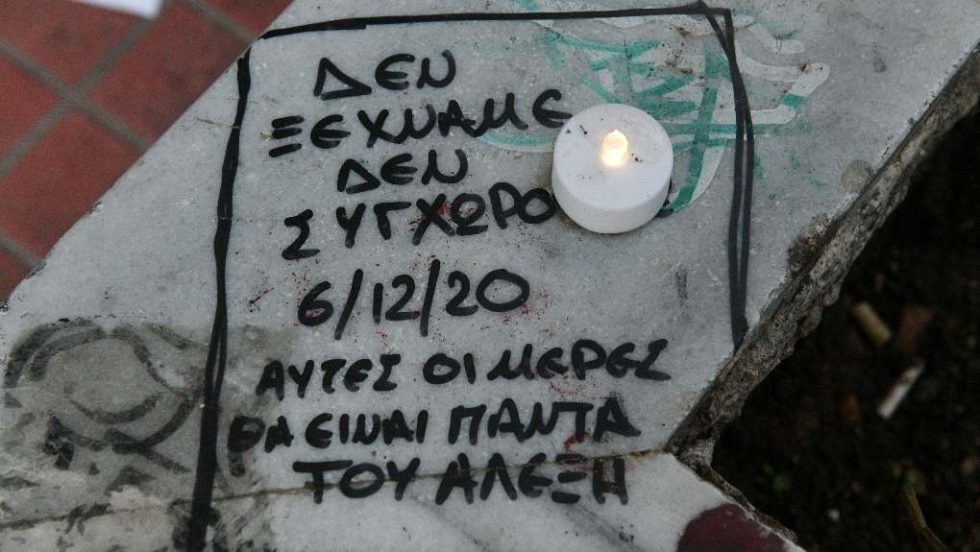 ΔΕΝ
ΞΕΧΝΑΜΕ
ΔΕΝ
ΣΥΓΧΩΡΟ
6/12/20
ΑΥΤΕΣ ΟΙ ΜΕΡΕΣ
ΘΑ ΕΙΝΑΙ ΠΑΝΤΑ
ΤΟΥ ΑΛΕΞΗ